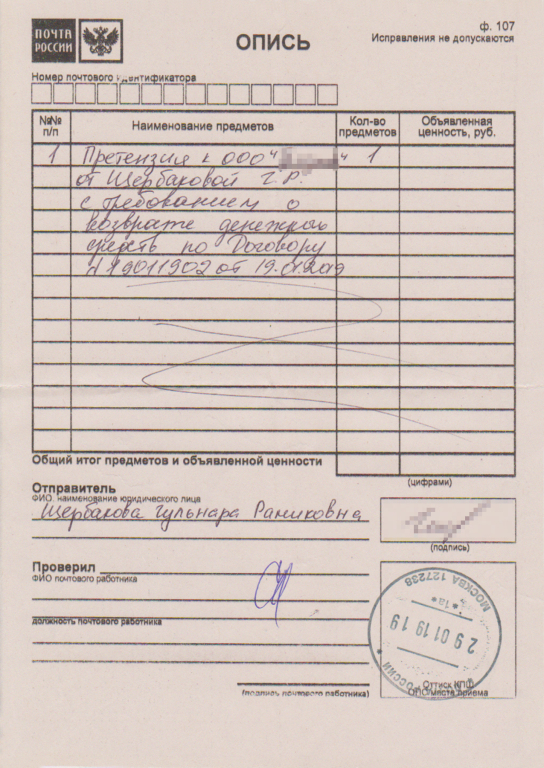 ПОЧТА
РОССИИ
ф. 107
Исправления не допускаются
ОПИСЬ
Номер почтового идентификатора
№№
п/п
Наименование предметов
Кол-во
предметов
Объявленная
ценность, руб.
1 Претензия к ООО " " 1
от Щербаковой Г.Р.
с требованием о
возврате денежных
средств по Договору
№19011902 от 19.01.2019
Общий итог предметов и объявленной ценности
(цифрами)
Отправитель
ФИО, наименование юридического лица
Щербакова Гульнара Рамиковна
(подпись)
Проверил
ФИО почтового работника
должность почтового работника
(подпись почтового работника)
МОСКВА 127238
29 01 19 19
Оттиск КПШ
ОПС места приема